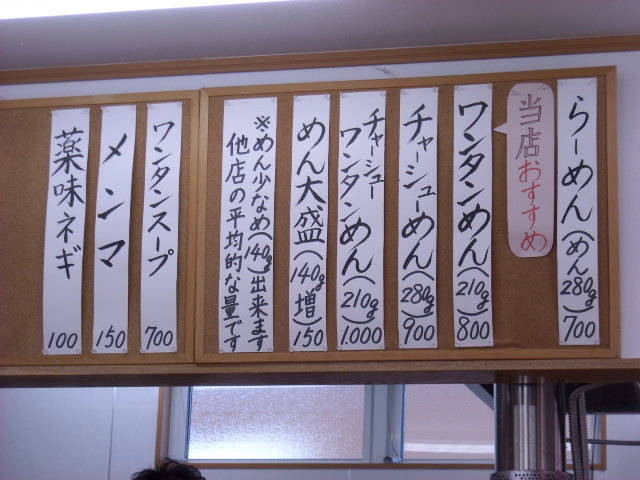 らーめん(めん280g)700
当店おすすめ
ワンタンめん(210g)800
チャーシューめん(280g)900
チャーシューワンタンめん(210g)1.000
めん大盛(140g増)150
※めん少なめ(140g)出来ます
他店の平均的な量です
ワンタンスープ 700
メンマ 150
薬味ネギ 100